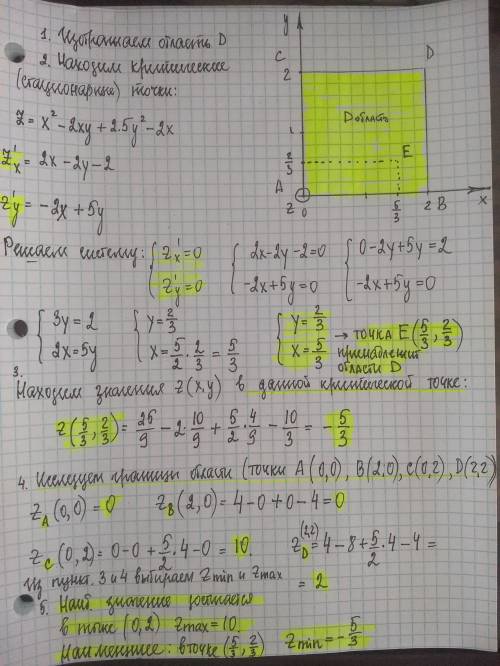 1. Изображаем область D
2. Находим критические
(стационарные) точки:
z = x² - 2xy + 2.5y² - 2x
z'x = 2x - 2y - 2
z'y = -2x + 5y
y
C
D
2
D область
1
2/3
E
A
z
0
5/3
2 B
x
Решаем систему: { z'x = 0 { 2x - 2y - 2 = 0 { 0 - 2y + 5y = 2
z'y = 0 -2x + 5y = 0 -2x + 5y = 0
{ 3y = 2 { y = 2/3 { y = 2/3 → точка E(5/3, 2/3)
2x = 5y x = 5/2 · 2/3 = 5/3 x = 5/3 принадлежит
области D
3.
Находим значения z(x,y) в данной критической точке:
z(5/3, 2/3) = 25/9 - 2·10/9 + 5/2·4/9 - 10/3 = -5/3
4. Исследуем границы области (точки A(0,0), B(2,0), C(0,2), D(2,2)
zA(0,0) = 0 zB(2,0) = 4 - 0 + 0 - 4 = 0
zC(0,2) = 0 - 0 + 5/2·4 - 0 = 10. zD(2,2) = 4 - 8 + 5/2·4 - 4 =
= 2
из пункта. 3 и 4 выбираем zmin и zmax
5. Наиб значение достигается
в точке (0,2) zmax = 10.
Наименьшее: в точке (5/3, 2/3) zmin = -5/3